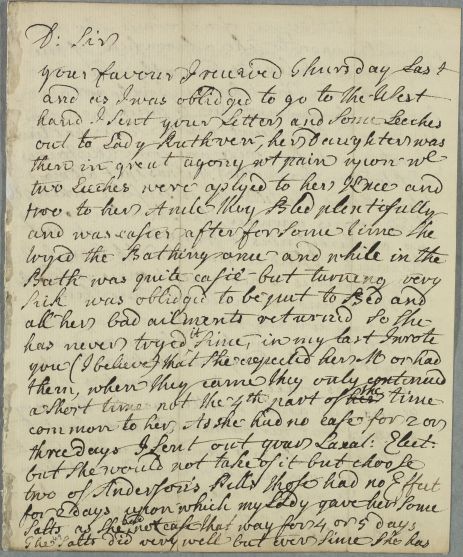 D: Sir
your favour I receved Thursday Last
and as I was oblidged to go to the West
hand I sent your Letter and some Leeches
out to Lady Ruthven, her Daughter was
then in great agony wt pain upon wc
two Leeches were aplyed to her Knee and
two to her Ancle they Bled plentifully
and was easier after for some time She
tryed the Bathing ance and while in the
Bath was quite easie but turning very
Sick was oblidged to be put to Bed and
all her bad ailments returned So She
has never tryed it Since, in my last I wrote
you (I believe) that She expected her M: or had
them, when they came they only continued
a Short time not the 4th part of the time
common to her. As she had no ease for 2 or
three days I Sent out your Laxat: Elect:
but She would not take of it but choose
two of Anderson's Pills those had no Effect
for 2 days upon which my Lady gave her some
Salts as She had not ease that way for 4 or 5 days
The Salts did very well but ever Since She has